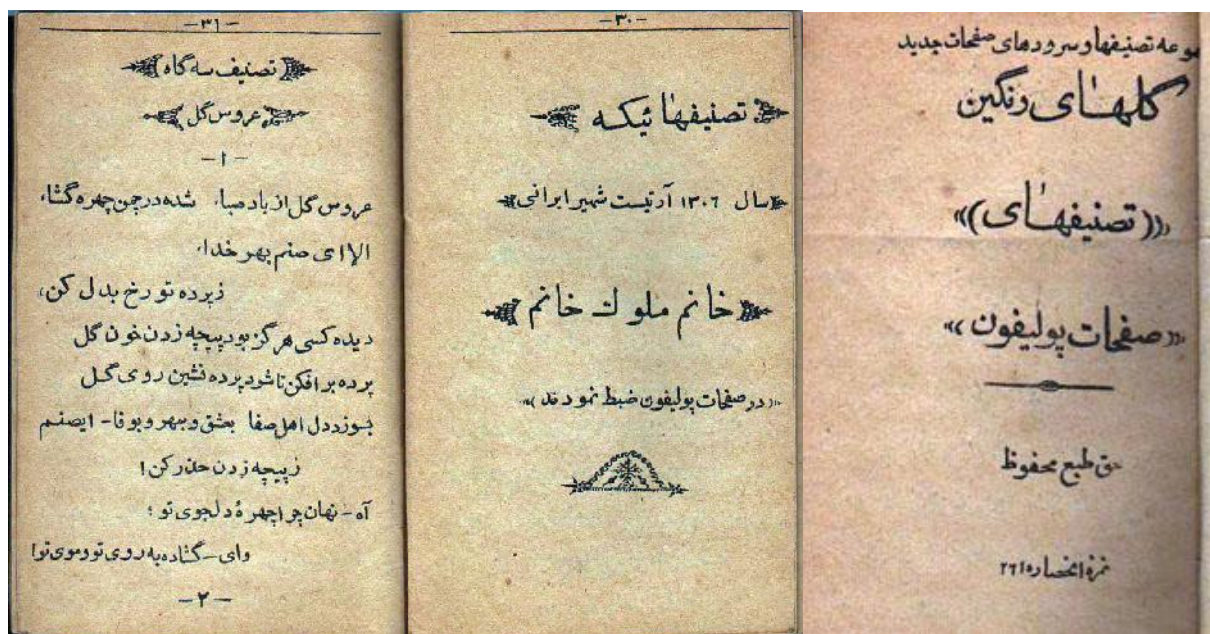 موعه تصنیفها و سرودهای صفحات جدید
گلهای رنگین
«(تصنیفهای)»
«صفحات پولیفون»
حق طبع محفوظ
نمرهٔ انحصار
-۳۰-
تصنیفهائیکه
سال ۱۳۰۶ آرتیست شهیر ایرانی
خانم ملوک خانم
«(در صفحات پولیفون ضبط نمودند)»
-۳۱-
تصنیف سه گاه
عروس گل
-۱-
عروس گل از باد صبا، شده در چمن چهره گشا،
الا ای صنم بهر خدا،
ز پرده تو رخ بدل کن،
دیده کسی هرگز بود پیچه زدن خون گل
پرده بر افکن تا شود پرده نشین روی گل
بسوزد دل اهل صفا بعشق و بمهر و بوفا - ایصنم
ز پیچه زدن حذر کن!
آه - نهان چرا چهرهٔ دلجوی تو؛
وای - گشاده به روی تو و موی تو!
-۲-